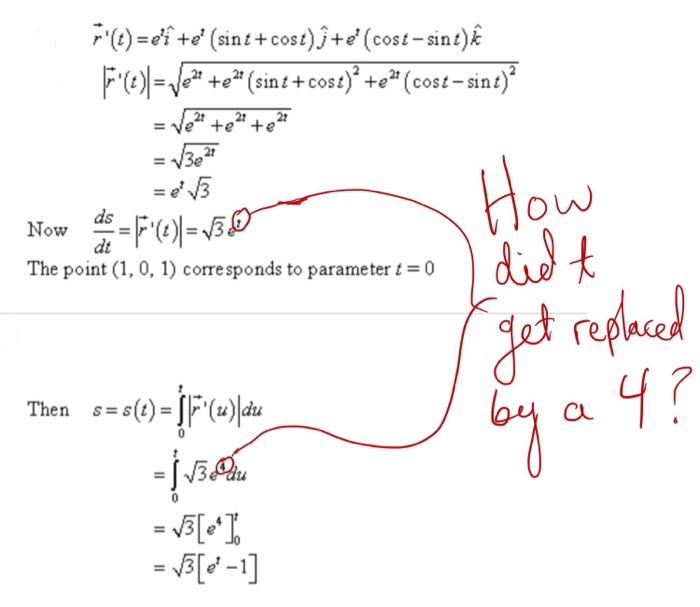 r⃗'(t) = eᵗî + eᵗ (sin t + cos t) ĵ + eᵗ (cos t − sin t) k̂
|r⃗'(t)| = √(e²ᵗ + e²ᵗ (sin t + cos t)² + e²ᵗ (cos t − sin t)²)
= √(e²ᵗ + e²ᵗ + e²ᵗ)
= √(3e²ᵗ)
= eᵗ √3
Now ds/dt = |r⃗'(t)| = √3 eᵗ
The point (1, 0, 1) corresponds to parameter t = 0
How
did t
get replaced
by a 4?
Then s = s(t) = ∫₀ᵗ |r⃗'(u)| du
= ∫₀ᵗ √3 e⁴ du
= √3 [e⁴]₀ᵗ
= √3 [eᵗ − 1]